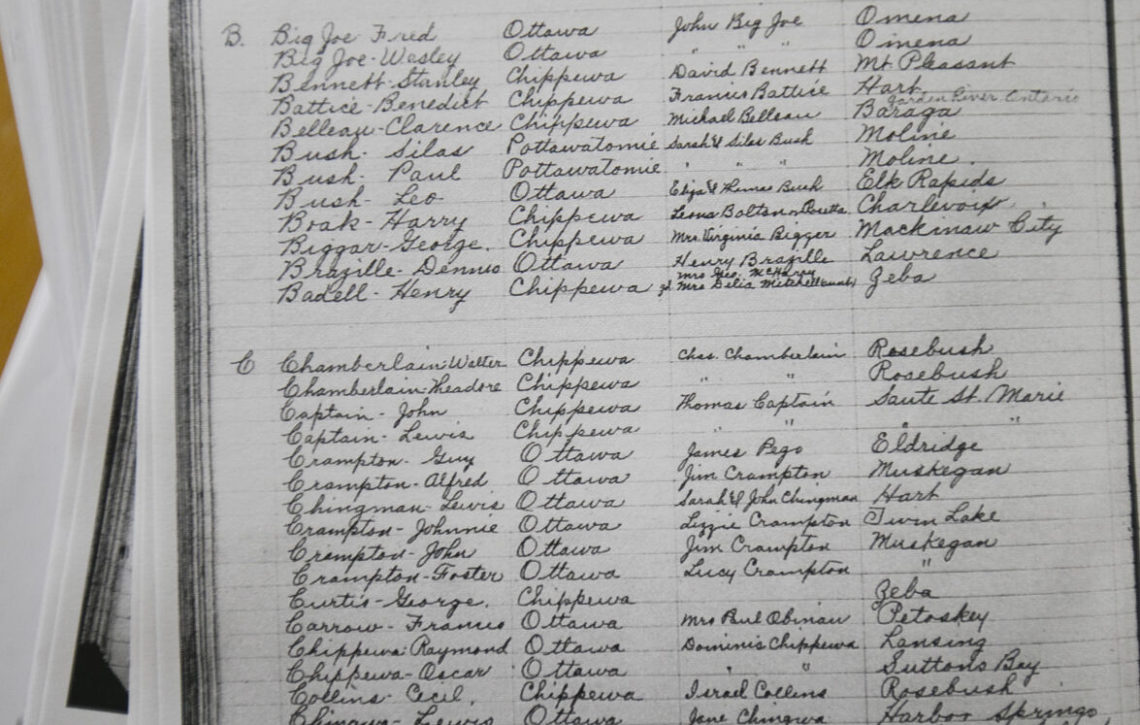 B. Big Joe Fred Ottawa John Big Joe Omena
Big Joe-Wesley Ottawa " " " Omena
Bennett-Stanley Chippewa David Bennett Mt Pleasant
Battice-Benedict Chippewa Francis Battice Hart
Garden River Ontario
Belleau-Clarence Chippewa Michael Belleau Baraga
Bush- Silas Pottawatomie Sarah & Silas Bush Moline
Bush- Paul Pottawatomie " " " Moline.
Bush- Leo Ottawa Eliza & Thomas Bush Elk Rapids
Boak-Harry Chippewa Leona Bolton Charlevoix
Biggar-George. Chippewa Mrs Virginia Bigger Mackinaw City
Brazille-Dennis Ottawa Henry Brazille Lawrence
Mrs Geo. McHarry
Badell-Henry Chippewa Mrs Delia Mitchell (aunt) Zeba
C Chamberlain-Walter Chippewa Chas. Chamberlain Rosebush
Chamberlain-Theadore Chippewa " " Rosebush
Captain- John Chippewa Thomas Captain Saute St. Marie
Captain- Lewis Chippewa " " "
Crampton- Guy Ottawa James Pego Eldridge
Crampton-Alfred Ottawa Jim Crampton Muskegan
Chingman-Lewis Ottawa Sarah & John Chingman Hart
Crampton-Johnnie Ottawa Lizzie Crampton Twin Lake
Crampton-John Ottawa Jim Crampton Muskegan
Crampton-Foster Ottawa Lucy Crampton "
Curtis-George. Chippewa Zeba
Carrow-Francis Ottawa Mrs Obinau Petoskey
Chippewa-Raymond Ottawa Dominis Chippewa Lansing
Chippewa-Oscar Ottawa " " Suttons Bay
Collins-Cecil. Chippewa Israel Collins Rosebush
Chingwa-Lewis Ottawa Jane Chingwa Harbor Springs,